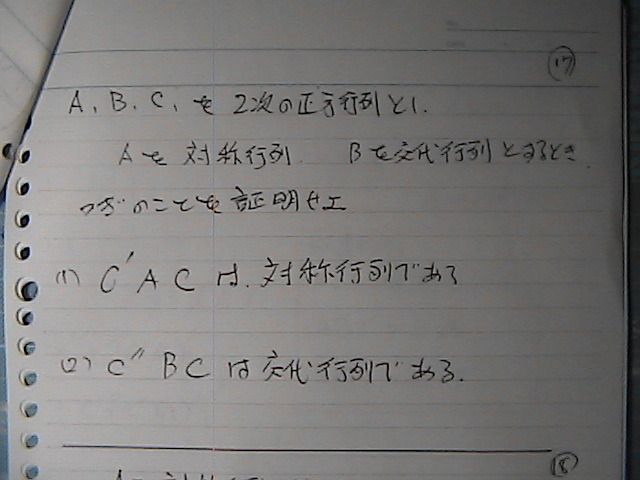 ⑰
A, B, C, を 2次の正方行列とし.
Aを 対称行列. Bを交代行列 とするとき.
つぎのことを証明せエ
(1) C'AC は. 対称行列である
(2) C" BC は交代行列である.
⑱